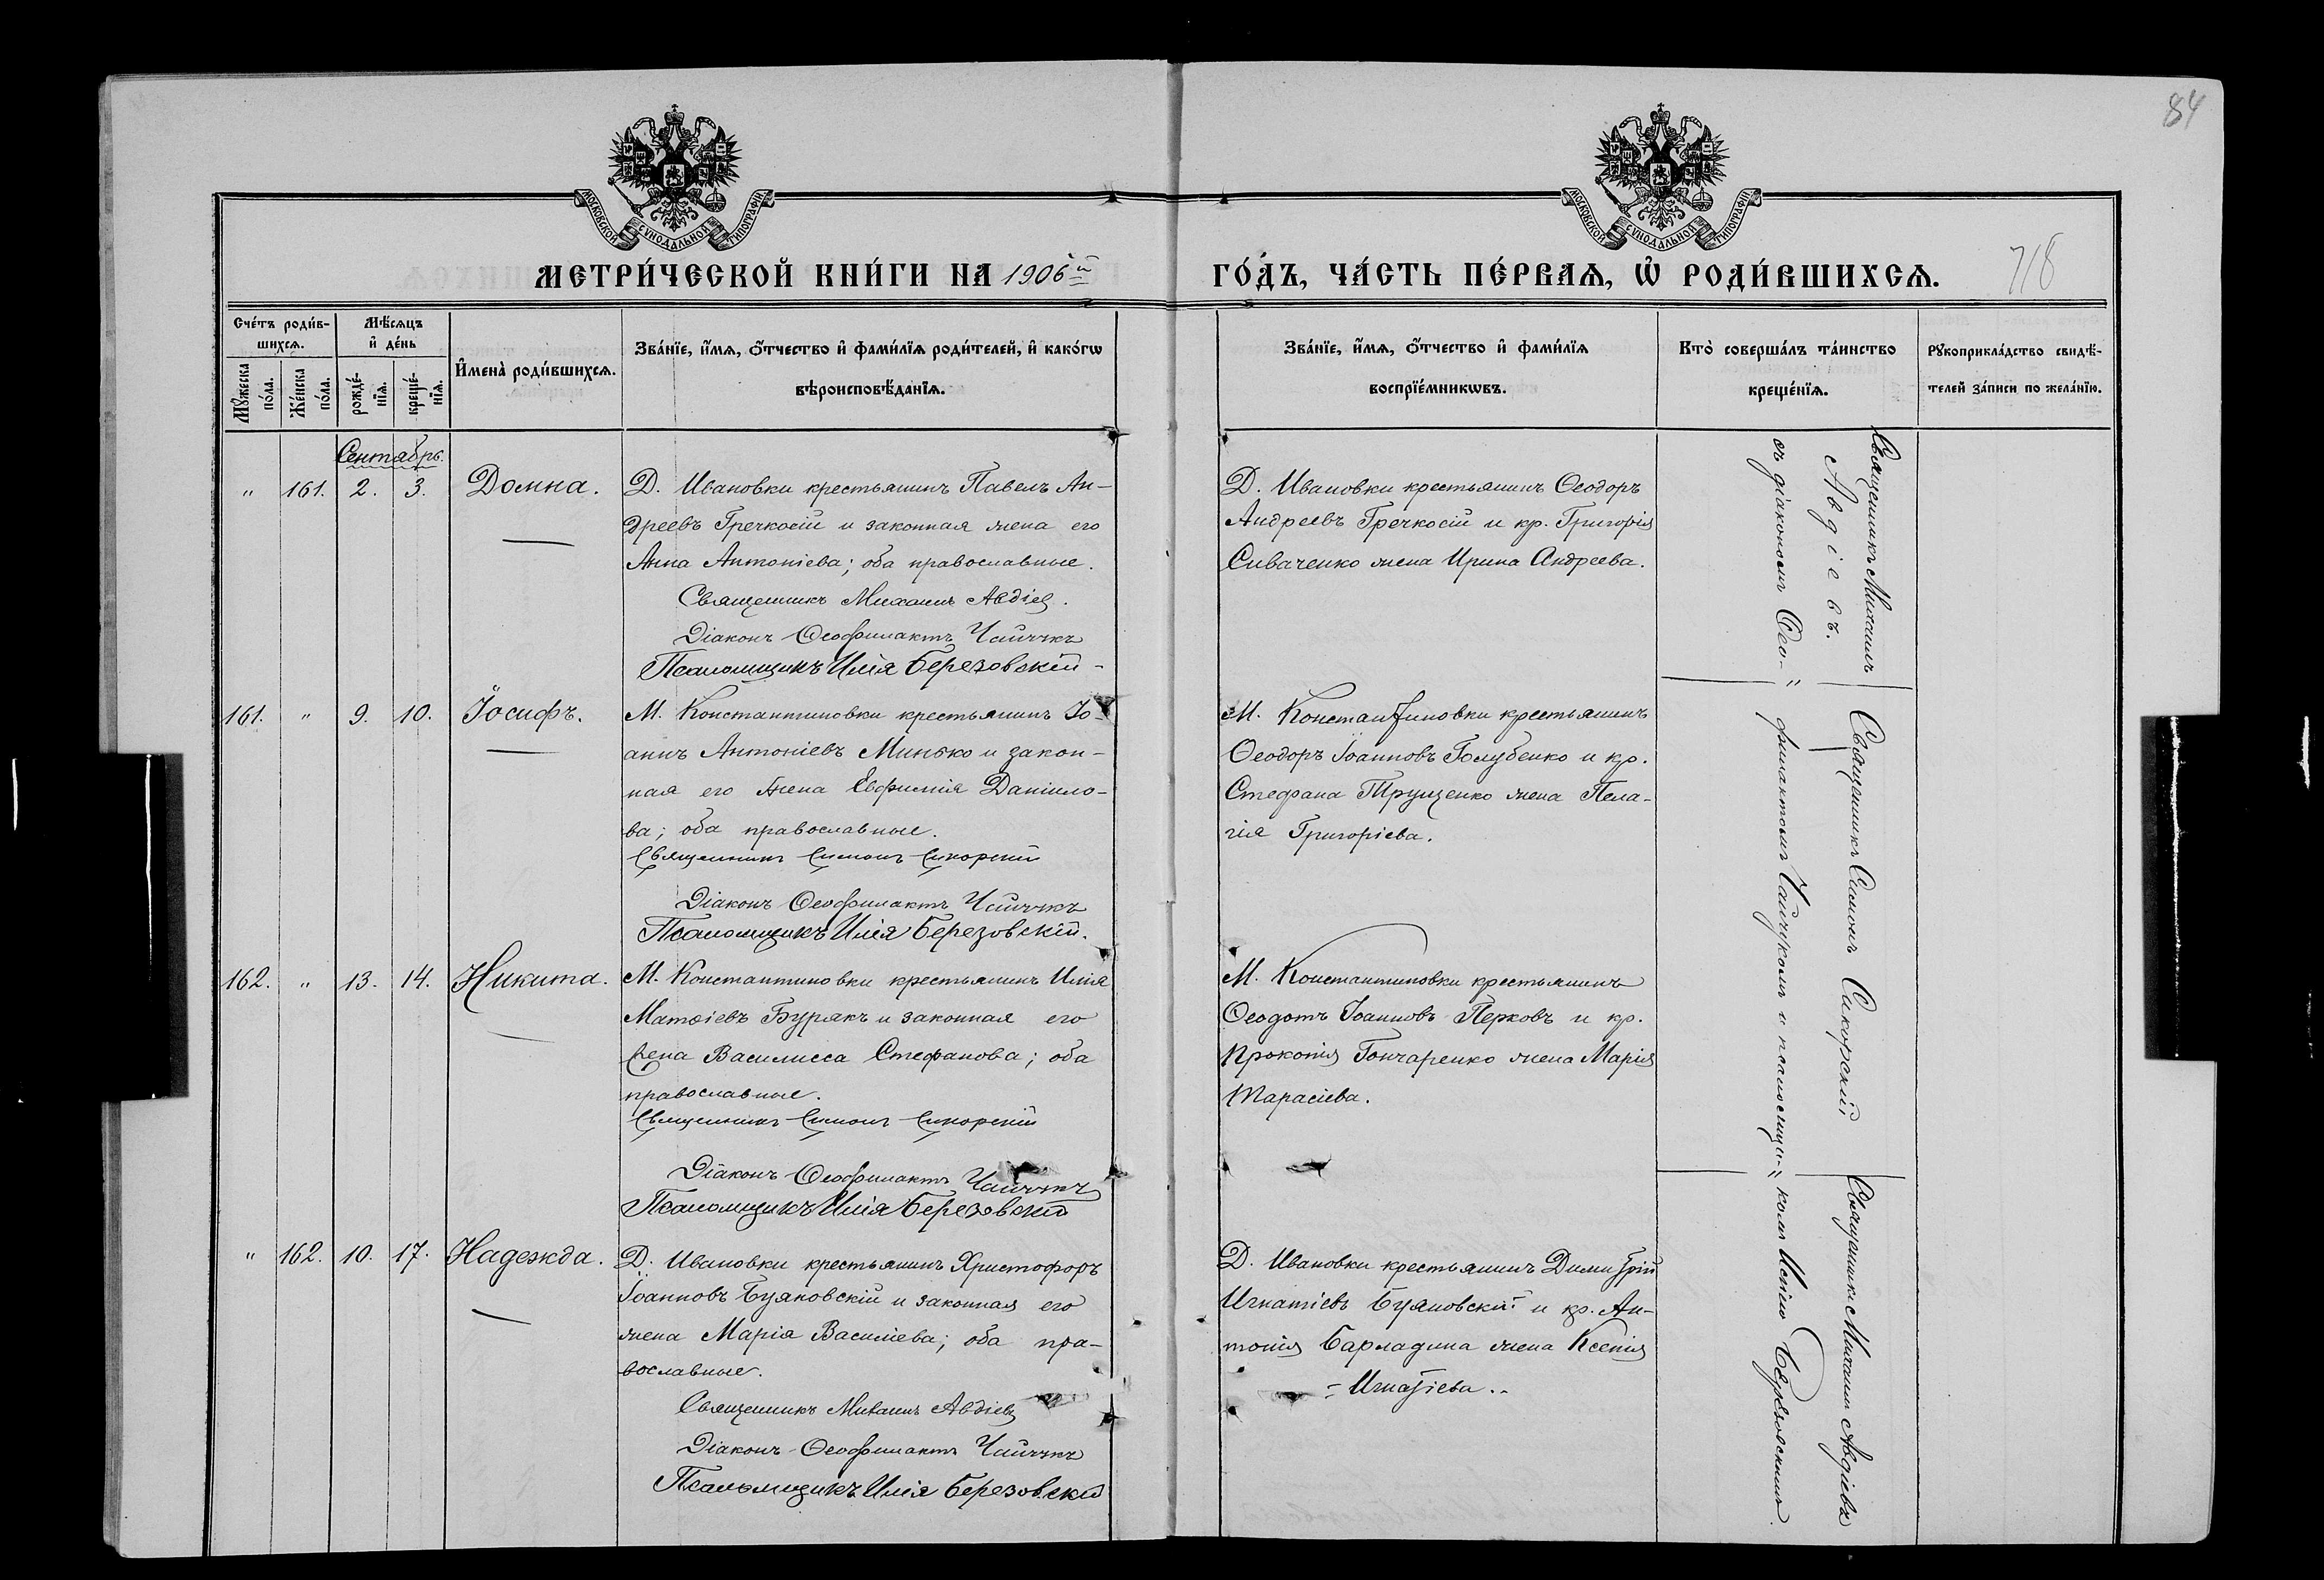 84
МОСКОВСКОЙ СУНОДАЛЬНОЙ ТИПОГРАФІИ
МОСКОВСКОЙ СУНОДАЛЬНОЙ ТИПОГРАФІИ
МЕТРИ́ЧЕСКОЙ КНИ́ГИ НА 1906й ГО́ДЪ, ЧА́СТЬ ПЕ́РВАѦ, Ѡ҆ РОДИ́ВШИХСѦ.
718
Сче́тъ роди́в-
шихсѧ.
Мѣ́сѧцъ
и҆ де́нь
Мꙋ́жеска
по́ла.
Же́нска
по́ла.
рожде́-
нїѧ.
креще́-
нїѧ.
И҆мена̀ роди́вшихсѧ.
Зва́нїе, и҆́мѧ, ѻ҆́тчество и҆ фами́лїѧ роди́телей, и҆ како́гѡ
вѣроисповѣ́данїѧ.
Зва́нїе, и҆́мѧ, ѻ҆́тчество и҆ фами́лїѧ
воспрїе́мникѡвъ.
Кто̀ соверша́лъ та́инство
креще́нїѧ.
Рꙋкоприкла́дство свидѣ́-
телей за́писи по жела́нїю.
Сентябрь.
" 161. 2. 3. Домна.
Д. Ивановки крестьянинъ Павелъ Ан-
дреевъ Гречкосій и законная жена его
Анна Антоніева; оба православные.
Священникъ Михаилъ Авдіев
Діаконъ Ѳеофилактъ Чайчукъ
Псаломщикъ Илія Березовскій
Д. Ивановки крестьянинъ Ѳеодоръ
Андреевъ Гречкосій и кр. Григорія
Сиваченко жена Ирина Андреева.
161. " 9. 10. Іосифъ.
М. Константиновки крестьянинъ Іо-
аннъ Антоніевъ Минько и закон-
ная его жена Евфимія Даніило-
ва; оба православные.
Священникъ Симонъ Сикорскій
Діаконъ Ѳеофилактъ Чайчукъ
Псаломщикъ Илія Березовскій.
М. Константиновки крестьянинъ
Ѳеодоръ Іоанновъ Голубенко и кр.
Стефана Трущенко жена Пела-
гія Григоріева.
162. " 13. 14. Никита.
М. Константиновки крестьянинъ Илія
Матѳіевъ Бурякъ и законная его
жена Василисса Стефанова; оба
православные.
Священникъ Симонъ Сикорскій
Діаконъ Ѳеофилактъ Чайчукъ
Псаломщикъ Илія Березовскій
М. Константиновки крестьянинъ
Ѳеодотъ Іоанновъ Перковъ и кр.
Прокопія Гончаренко жена Марія
Тарасіева.
" 162. 10. 17. Надежда.
Д. Ивановки крестьянинъ Христофоръ
Іоанновъ Буяновскій и законная его
жена Марія Василіева; оба пра-
вославные.
Священникъ Михаилъ Авдіевъ
Діаконъ Ѳеофилактъ Чайчукъ
Псаломщикъ Илія Березовскій
Д. Ивановки крестьянинъ Димитрій
Игнатіевъ Буяновскій и кр. Ан-
тонія Барладина жена Ксенія
Игнатіева.
Священникъ Михаилъ
Авдіевъ.
Священникъ Симонъ Сикорскій
Священникъ Михаилъ Авдіевъ
съ діакономъ Ѳео- " филактомъ Чайчукомъ и псаломщи- " комъ Иліею Березовскимъ.